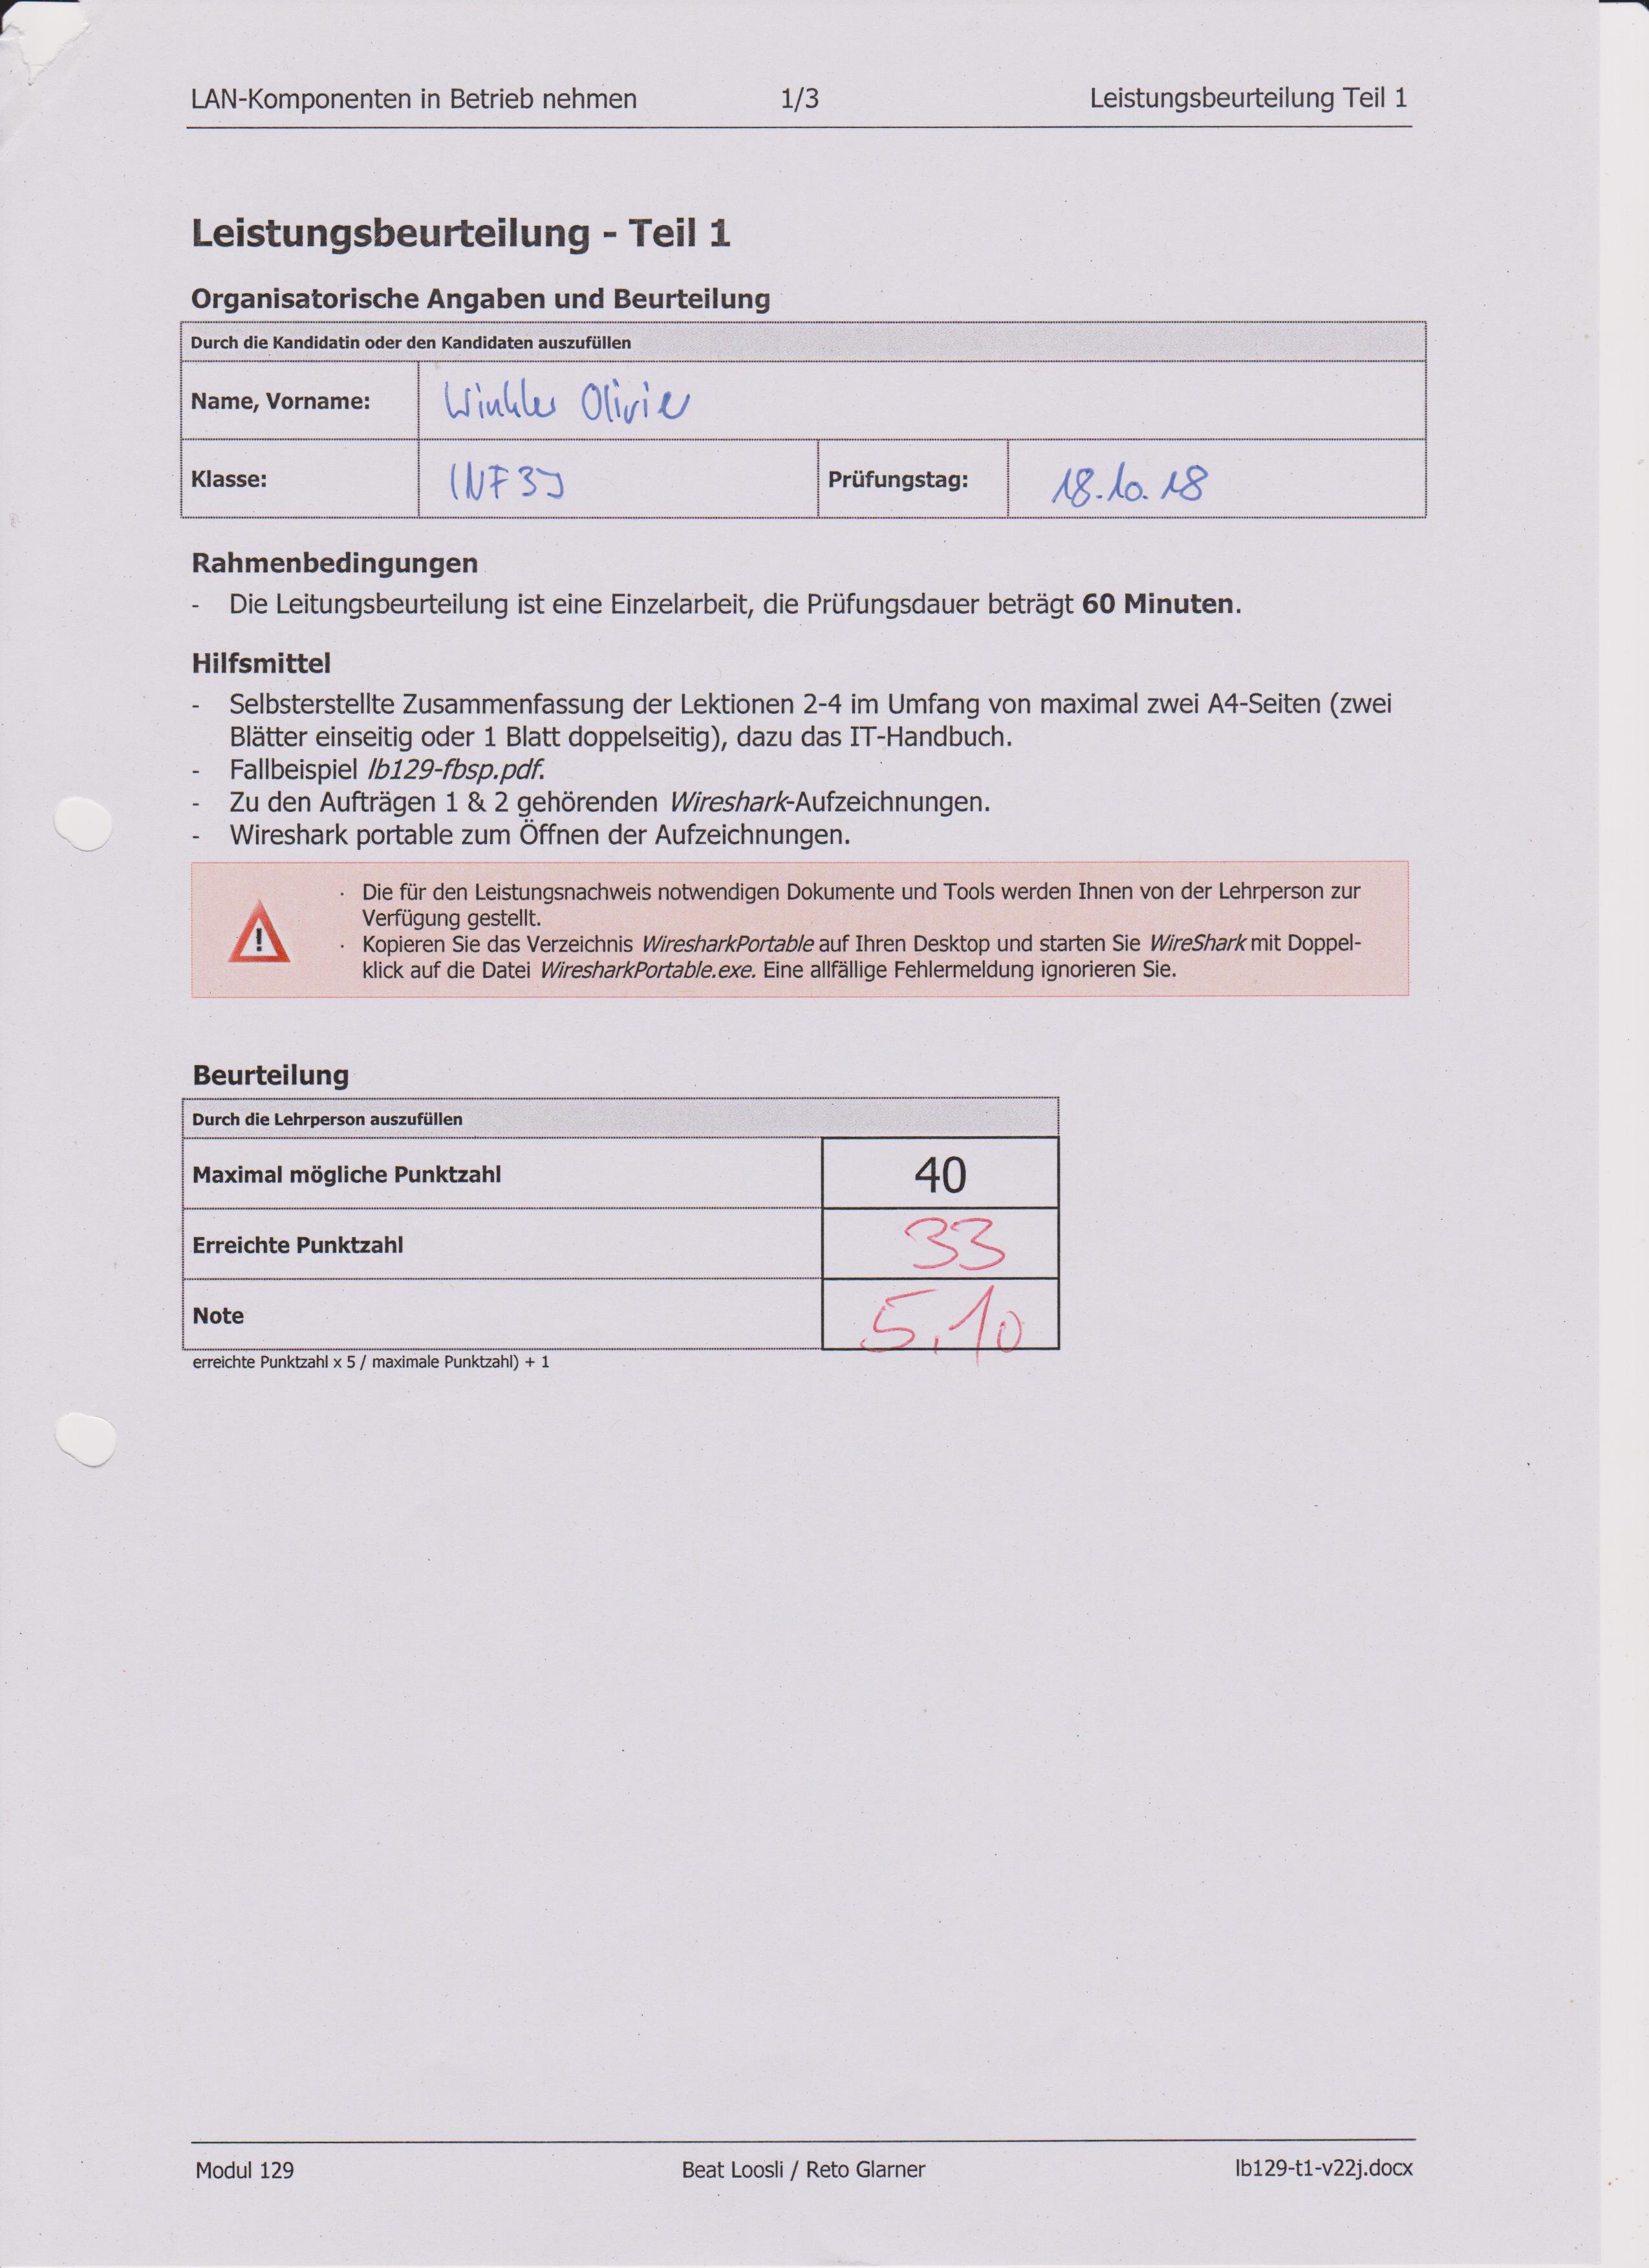 LAN-Komponenten in Betrieb nehmen 1/3 Leistungsbeurteilung Teil 1
Leistungsbeurteilung - Teil 1
Organisatorische Angaben und Beurteilung
Durch die Kandidatin oder den Kandidaten auszufüllen
Name, Vorname: Winkler Olivier
Klasse: INF3J Prüfungstag: 18.10.18
Rahmenbedingungen
- Die Leitungsbeurteilung ist eine Einzelarbeit, die Prüfungsdauer beträgt 60 Minuten.
Hilfsmittel
- Selbsterstellte Zusammenfassung der Lektionen 2-4 im Umfang von maximal zwei A4-Seiten (zwei
Blätter einseitig oder 1 Blatt doppelseitig), dazu das IT-Handbuch.
- Fallbeispiel lb129-fbsp.pdf.
- Zu den Aufträgen 1 & 2 gehörenden Wireshark-Aufzeichnungen.
- Wireshark portable zum Öffnen der Aufzeichnungen.
· Die für den Leistungsnachweis notwendigen Dokumente und Tools werden Ihnen von der Lehrperson zur
Verfügung gestellt.
· Kopieren Sie das Verzeichnis WiresharkPortable auf Ihren Desktop und starten Sie WireShark mit Doppel-
klick auf die Datei WiresharkPortable.exe. Eine allfällige Fehlermeldung ignorieren Sie.
Beurteilung
Durch die Lehrperson auszufüllen
Maximal mögliche Punktzahl 40
Erreichte Punktzahl 33
Note 5,10
erreichte Punktzahl x 5 / maximale Punktzahl) + 1
Modul 129 Beat Loosli / Reto Glarner lb129-t1-v22j.docx